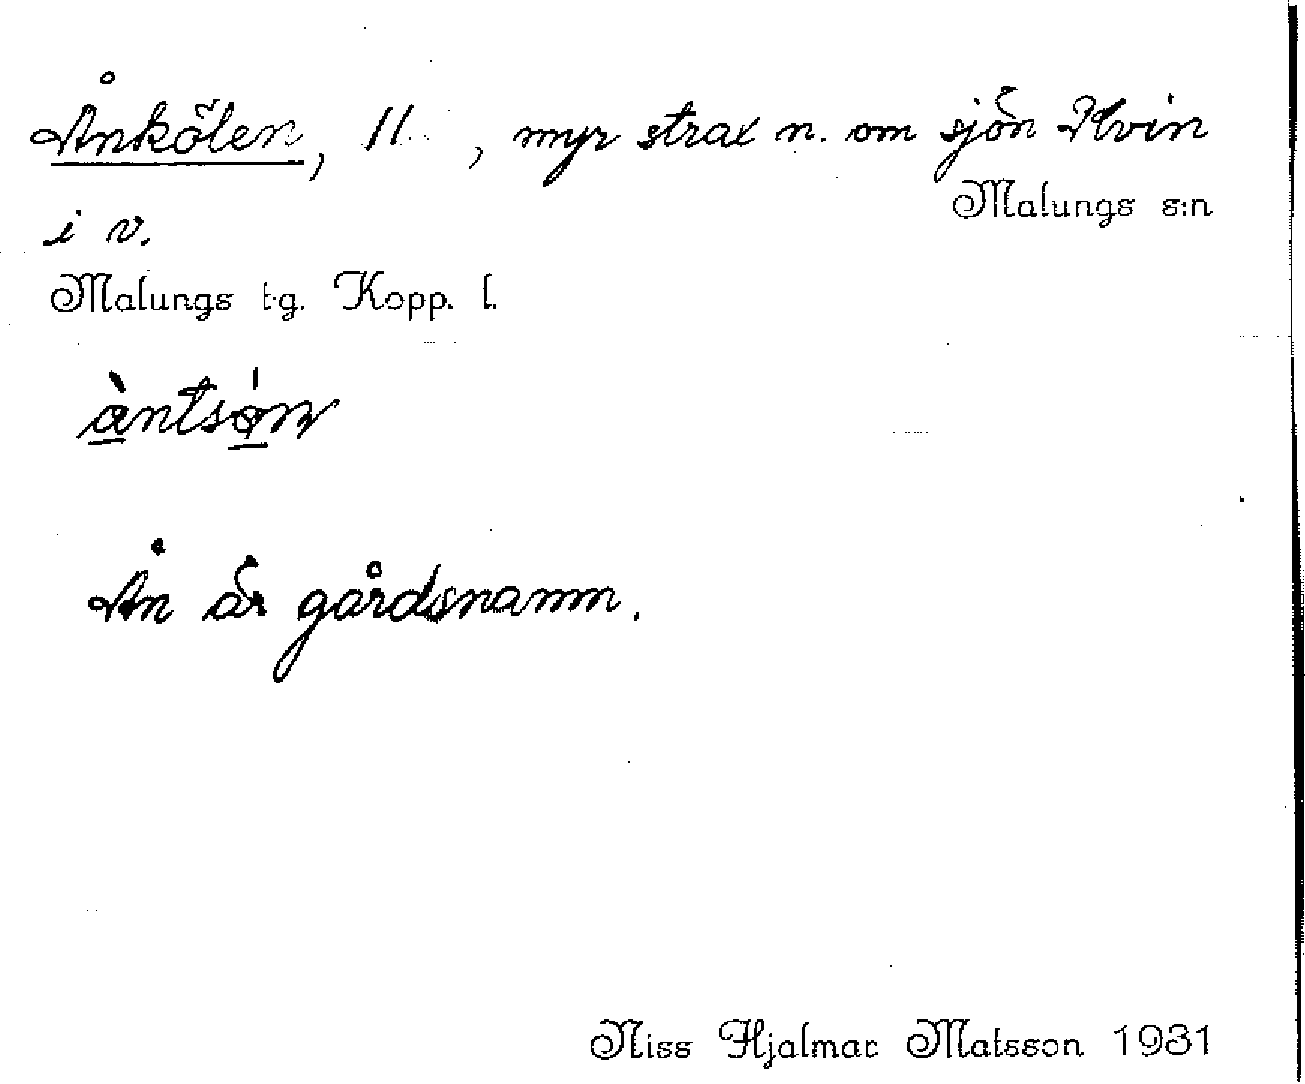 Ånkölen, 11 , myr strax n. om sjön Hvin
Malungs s:n
i v.
Malungs t.g. Kopp. l.
àntsón
Ån är gårdsnamn.
Niss Hjalmar Matsson 1931